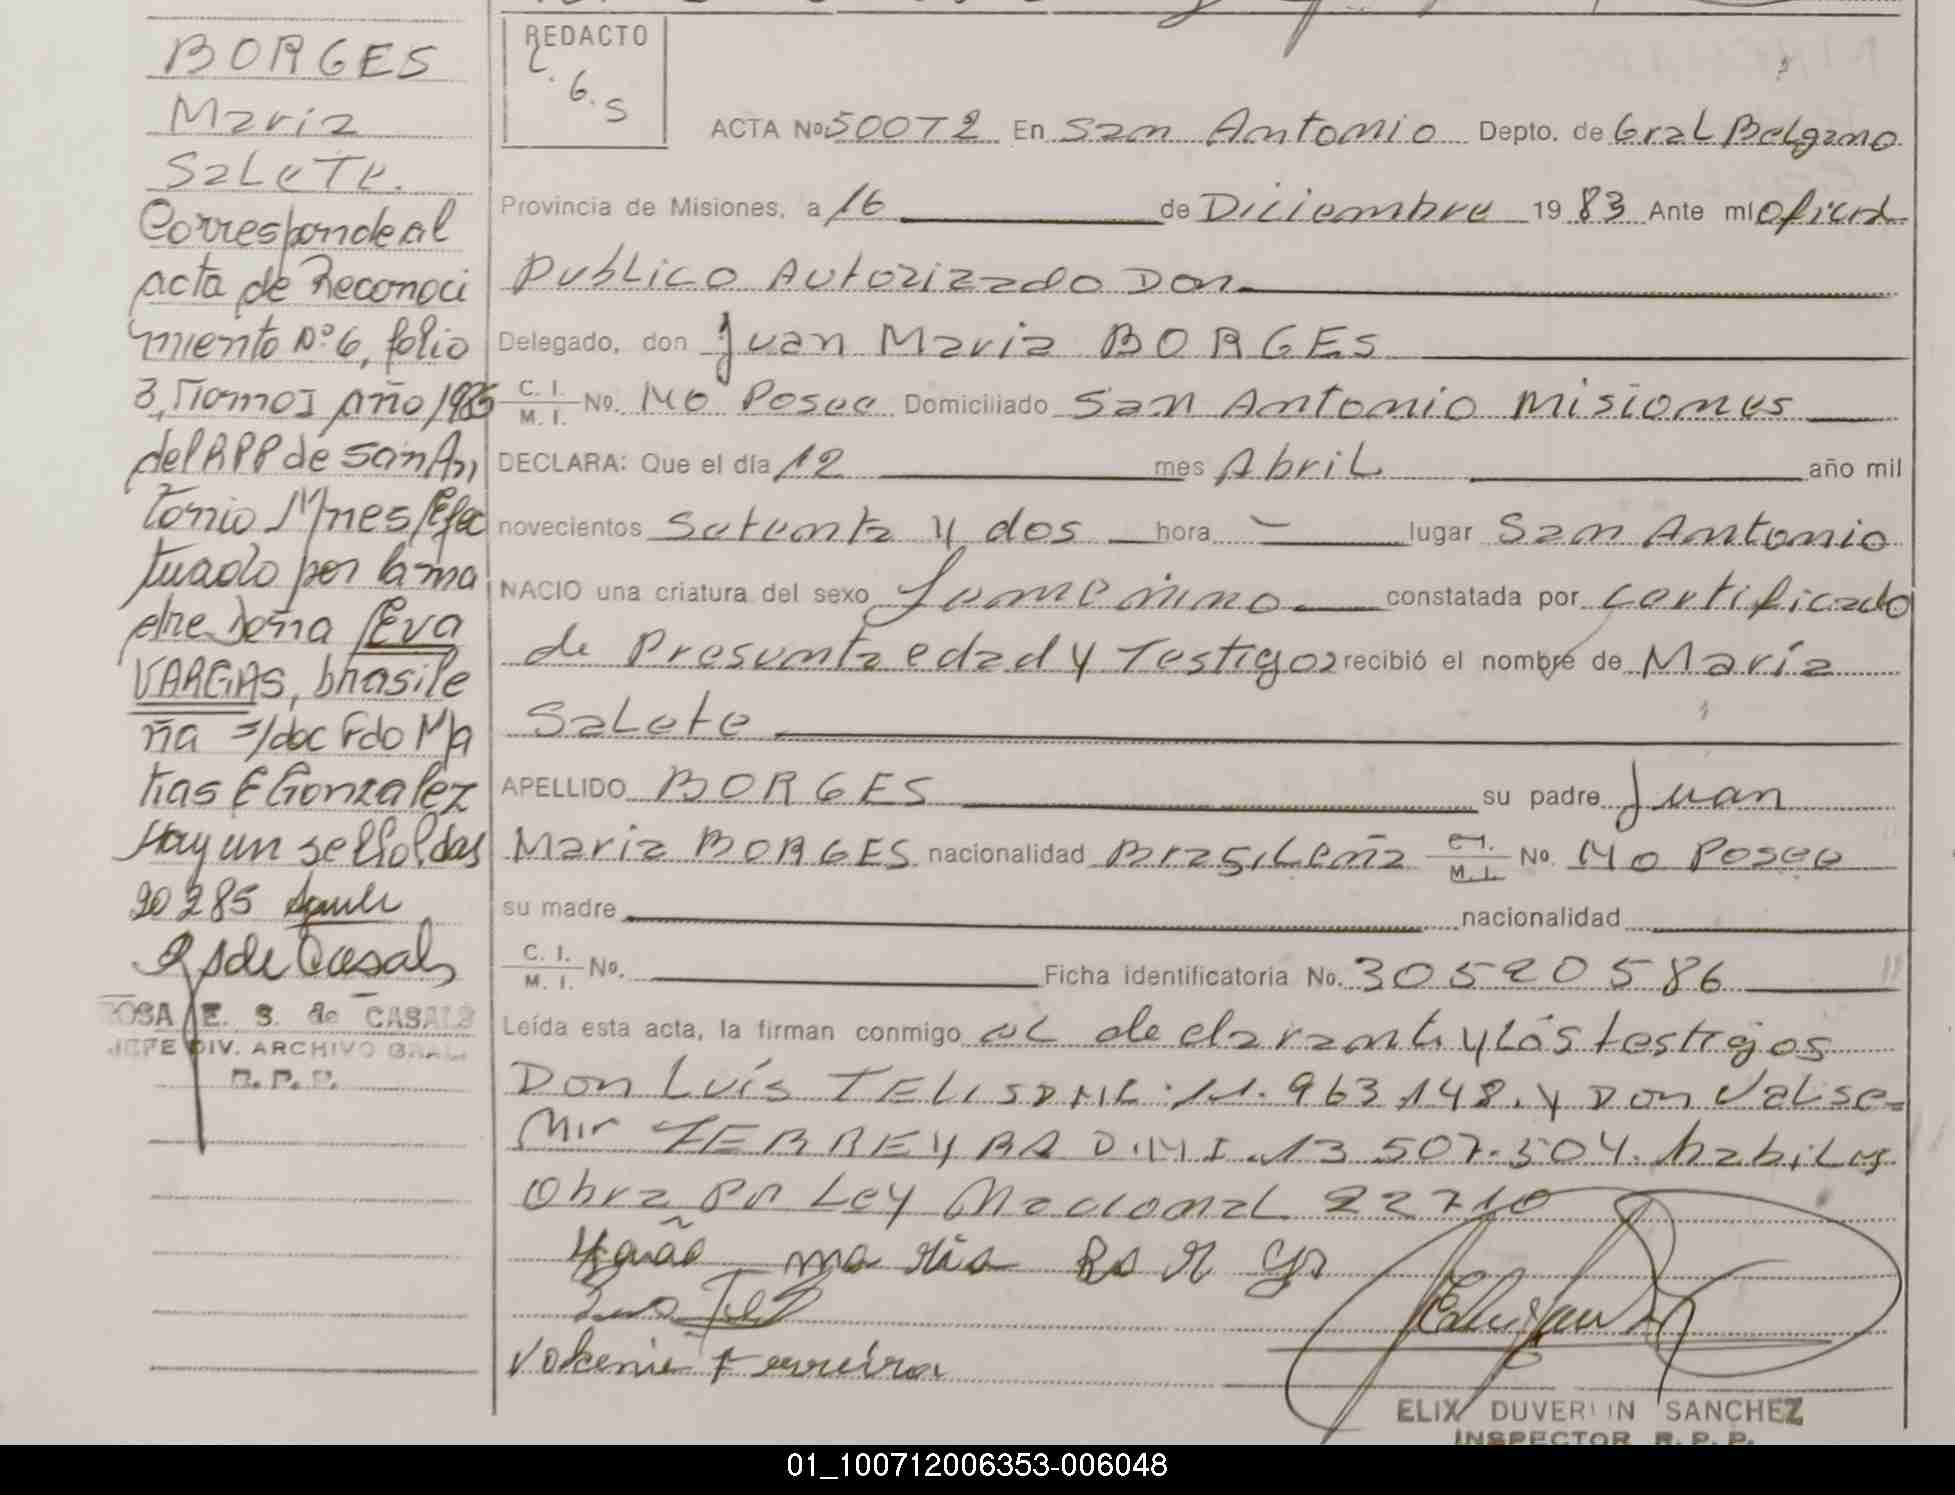 BORGES
Maria
Salete.
Corresponde al
acta de Reconoci
miento Nº 6, folio
3, Tomo I año 1985
del RPP de San An
tonio Mnes/Efec
tuado por la ma
dre Doña Eva
VARGAS, brasile
ña s/doc Fdo Ma
tias E Gonzalez
Hay un sello. Pdas
20 2 85
R S de Casals
ROSA E. S. de CASALS
JEFE DIV. ARCHIVO GRAL.
R. P. P.
REDACTO
6. S
ACTA No 50072 En San Antonio Depto. de Gral Belgrano
Provincia de Misiones, a 16 de Diciembre 19 83 Ante mi Oficial
Publico Autorizado Don
Delegado, don Juan Maria BORGES
C. I. M. I. No. No Posee Domiciliado San Antonio Misiones
DECLARA: Que el día 12 mes Abril año mil
novecientos Setenta y dos hora — lugar San Antonio
NACIO una criatura del sexo Femenino constatada por certificado
de Presunta edad y Testigos recibió el nombre de María
Salete
APELLIDO BORGES su padre Juan
Maria BORGES nacionalidad Brasileña C.I. M. I. No. No Posee
su madre nacionalidad
C. I. M. I. No. Ficha identificatoria No. 30520586
Leída esta acta, la firman conmigo el declarante y los testigos
Don Luís TELIS DNI: 11.963.148. y Don Valse-
mir FERREYRA D.N.I. 13.507.504. habiles
Obra por Ley Nacional 22710
maria
Ferreira
ELIX DUVERLIN SANCHEZ
INSPECTOR R. P. P.
01_100712006353-006048